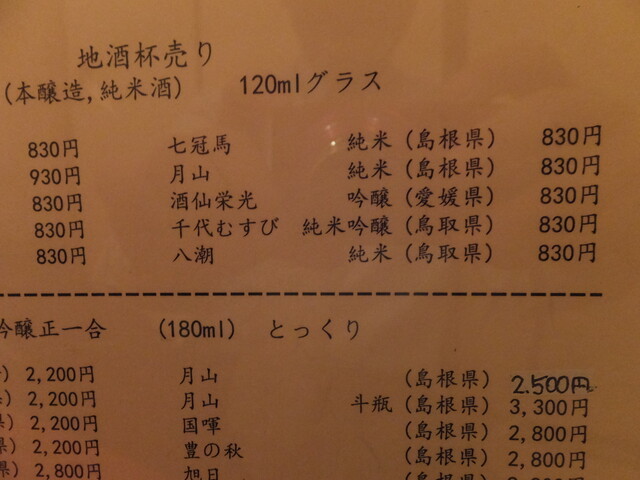 地酒杯売り
(本醸造,純米酒) 120mlグラス
830円 七冠馬 純米 (島根県) 830円
930円 月山 純米 (島根県) 830円
830円 酒仙栄光 吟醸 (愛媛県) 830円
830円 千代むすび 純米吟醸 (鳥取県) 830円
830円 八潮 純米 (鳥取県) 830円
吟醸正一合 (180ml) とっくり
) 2,200円 月山 (島根県) 2.500円
) 2,200円 月山 斗瓶 (島根県) 3,300円
県) 2,200円 国暉 (島根県) 2,800円
県) 2,200円 豊の秋 (島根県) 2,800円
県) 2,800円 旭日 2,800円